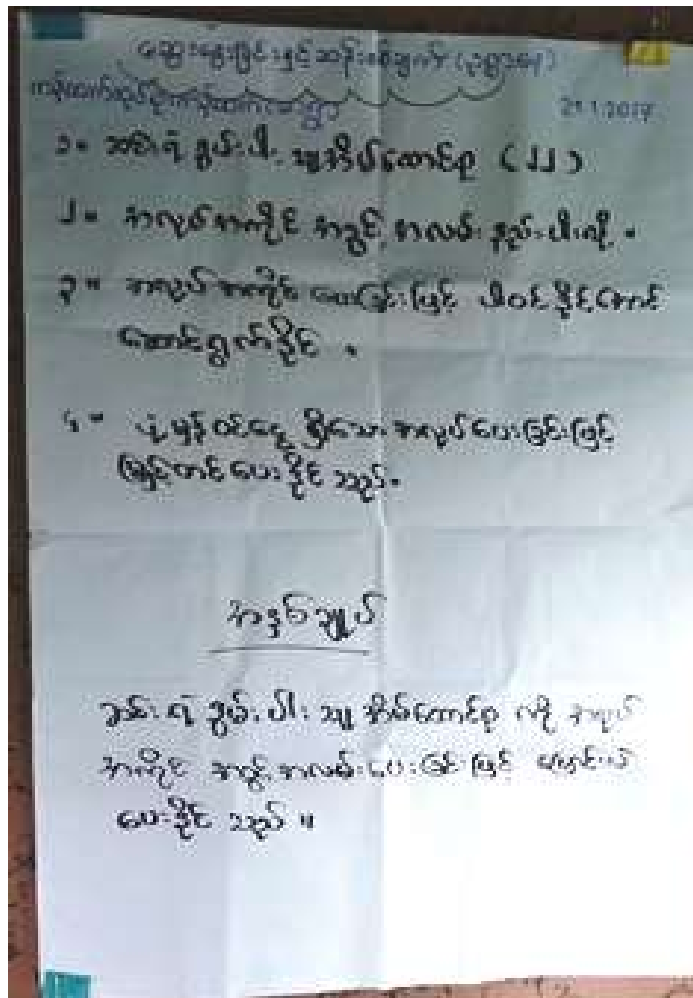 ဆွေးနွေးခြင်းနှင့်ဆန်းစစ်ချက် (ဥရုသနေ)
21.1.2017
၁။ ဆင်းရဲ နွမ်းပါး သူအိမ်ထောင်စု (၂၂)
၂။ အလုပ်အကိုင် အခွင့် အလမ်း နည်းပါးလို့ ။
၃။ အလုပ်အကိုင် ပေးခြင်းဖြင့် ပါဝင်နိုင်အောင်
ဆောင်ရွက်နိုင် ။
၄။ ပုံမှန်ဝင်ငွေ ရှိသော အလုပ်ပေးခြင်းဖြင့်
မြှင့်တင်ပေးနိုင် သည်။
အနှစ်ချုပ်
ဆင်းရဲ နွမ်းပါး သူ အိမ်ထောင်စု ကို အလုပ်
အကိုင် အခွင့် အလမ်းပေးခြင်းဖြင့်
ပေးနိုင် သည် ။